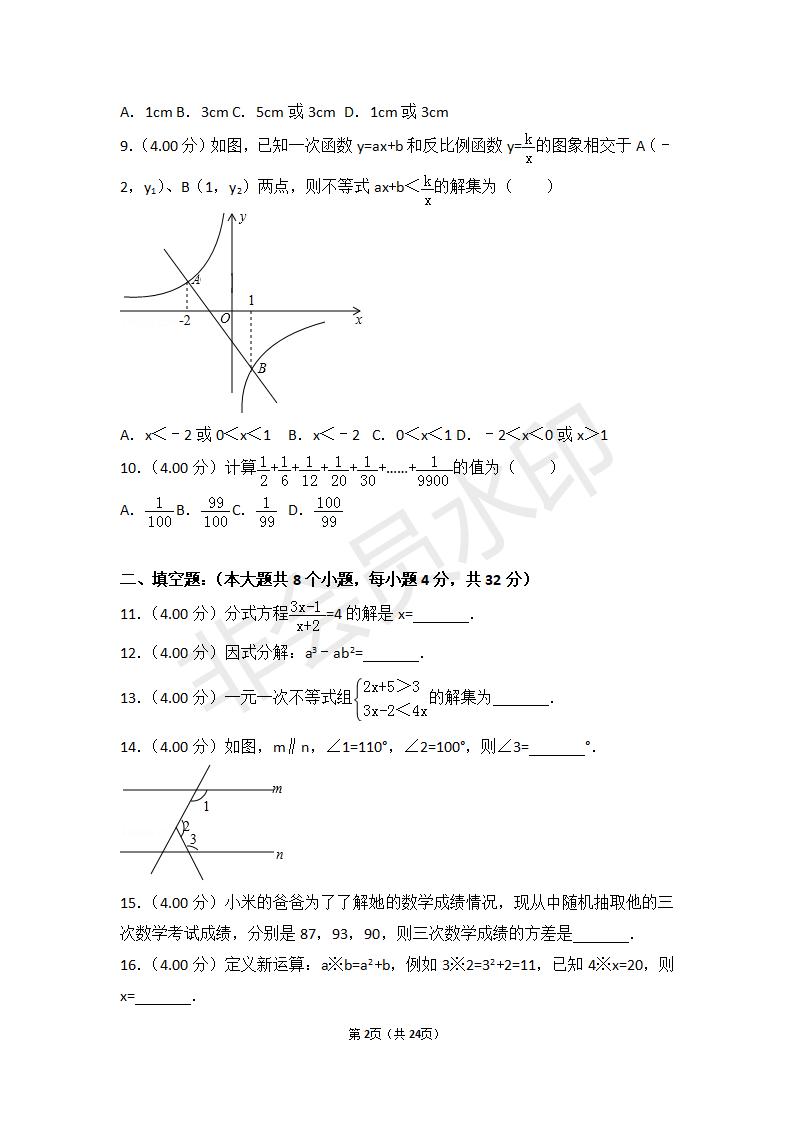 A．1cm B．3cm C．5cm 或 3cm D．1cm 或 3cm
9．（4.00 分）如图，已知一次函数 y=ax+b 和反比例函数 y=k/x 的图象相交于 A（﹣
2，y₁）、B（1，y₂）两点，则不等式 ax+b＜k/x 的解集为（　　）
y
A
1
-2
O
x
B
A．x＜﹣2 或 0＜x＜1 B．x＜﹣2 C．0＜x＜1 D．﹣2＜x＜0 或 x＞1
10．（4.00 分）计算1/2+1/6+1/12+1/20+1/30+……+1/9900的值为（　　）
A．1/100 B．99/100 C．1/99 D．100/99
二、填空题：（本大题共 8 个小题，每小题 4 分，共 32 分）
11．（4.00 分）分式方程(3x-1)/(x+2)=4 的解是 x=＿＿＿．
12．（4.00 分）因式分解：a³﹣ab²=＿＿＿．
13．（4.00 分）一元一次不等式组{2x+5＞3
3x-2＜4x 的解集为＿＿＿．
14．（4.00 分）如图，m∥n，∠1=110°，∠2=100°，则∠3=＿＿＿°．
m
1
2
3
n
15．（4.00 分）小米的爸爸为了了解她的数学成绩情况，现从中随机抽取他的三
次数学考试成绩，分别是 87，93，90，则三次数学成绩的方差是＿＿＿．
16．（4.00 分）定义新运算：a※b=a²+b，例如 3※2=3²+2=11，已知 4※x=20，则
x=＿＿＿．
第 2页（共 24页）
非会员水印